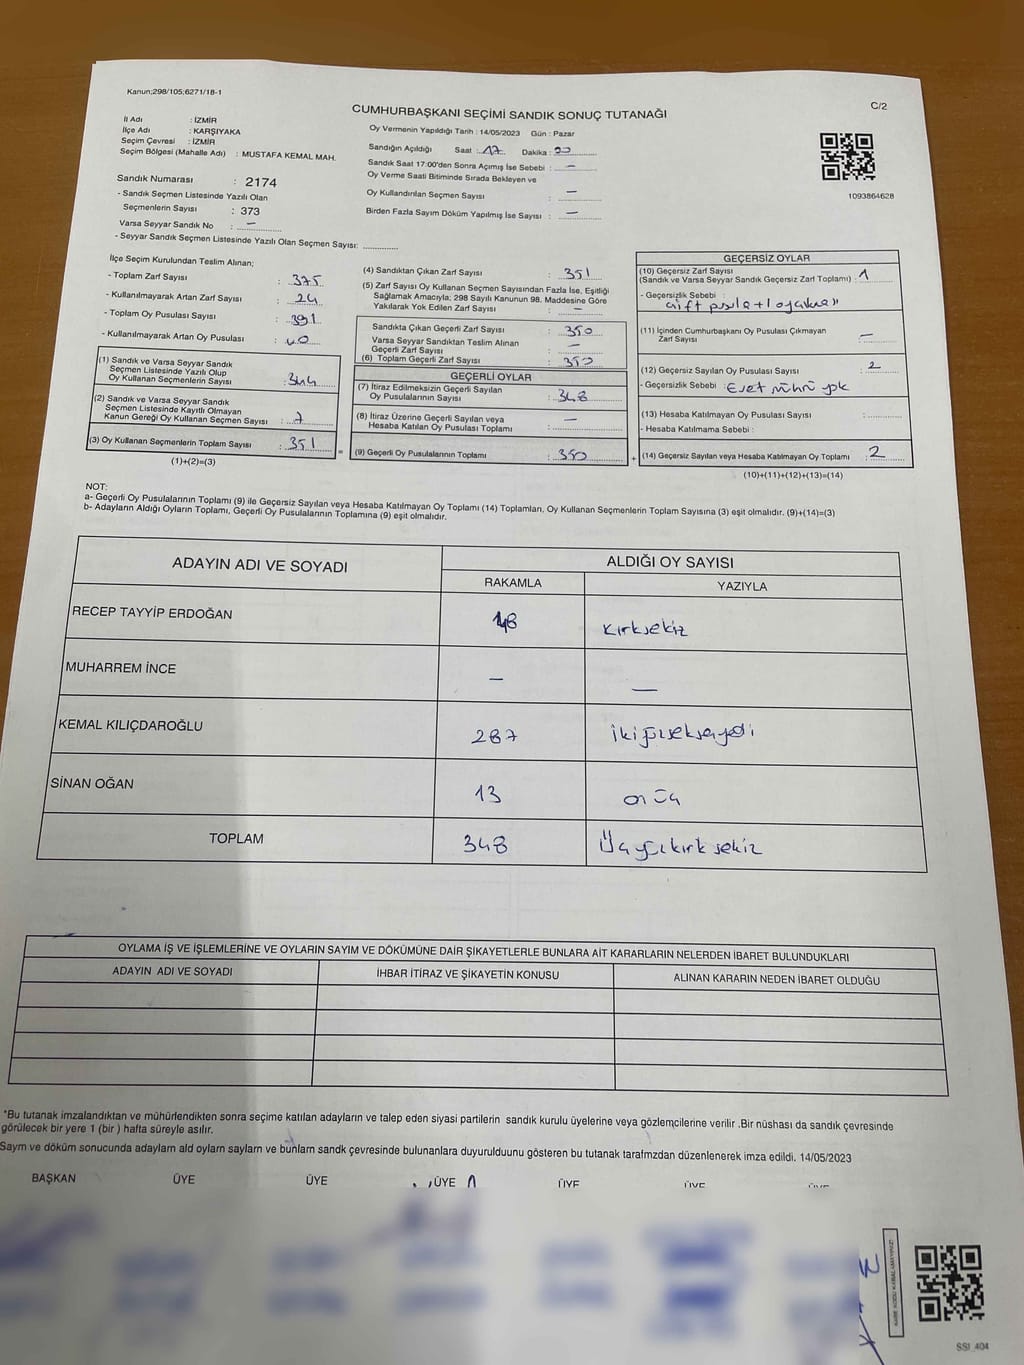 Kanun;298/105;6271/18-1
C/2
CUMHURBAŞKANI SEÇİMİ SANDIK SONUÇ TUTANAĞI
İl Adı : İZMİR
İlçe Adı : KARŞIYAKA
Seçim Çevresi : İZMİR
Seçim Bölgesi (Mahalle Adı) : MUSTAFA KEMAL MAH.
Sandık Numarası : 2174
- Sandık Seçmen Listesinde Yazılı Olan
Seçmenlerin Sayısı : 373
Varsa Seyyar Sandık No : —
- Seyyar Sandık Seçmen Listesinde Yazılı Olan Seçmen Sayısı:
Oy Vermenin Yapıldığı Tarih : 14/05/2023 Gün : Pazar
Sandığın Açıldığı Saat : 17 Dakika : 00
Sandık Saat 17:00'den Sonra Açımış İse Sebebi : —
Oy Verme Saati Bitiminde Sırada Bekleyen ve
Oy Kullandırılan Seçmen Sayısı : —
Birden Fazla Sayım Döküm Yapılmış İse Sayısı : —
1093864628
İlçe Seçim Kurulundan Teslim Alınan;
- Toplam Zarf Sayısı : 375
- Kullanılmayarak Artan Zarf Sayısı : 24
- Toplam Oy Pusulası Sayısı : 391
- Kullanılmayarak Artan Oy Pusulası : 40
(1) Sandık ve Varsa Seyyar Sandık
Seçmen Listesinde Yazılı Olup
Oy Kullanan Seçmenlerin Sayısı : 344
(2) Sandık ve Varsa Seyyar Sandık
Seçmen Listesinde Kayıtlı Olmayan
Kanun Gereği Oy Kullanan Seçmen Sayısı : 7
(3) Oy Kullanan Seçmenlerin Toplam Sayısı : 351
(1)+(2)=(3)
(4) Sandıktan Çıkan Zarf Sayısı : 351
(5) Zarf Sayısı Oy Kullanan Seçmen Sayısından Fazla İse, Eşitliği
Sağlamak Amacıyla; 298 Sayılı Kanunun 98. Maddesine Göre
Yakılarak Yok Edilen Zarf Sayısı : —
Sandıkta Çıkan Geçerli Zarf Sayısı : 350
Varsa Seyyar Sandıktan Teslim Alınan
Geçerli Zarf Sayısı : —
(6) Toplam Geçerli Zarf Sayısı : 350
GEÇERLİ OYLAR
(7) İtiraz Edilmeksizin Geçerli Sayılan
Oy Pusulalarının Sayısı : 348
(8) İtiraz Üzerine Geçerli Sayılan veya
Hesaba Katılan Oy Pusulası Toplamı : —
(9) Geçerli Oy Pusulalarının Toplamı : 350
GEÇERSİZ OYLAR
(10) Geçersiz Zarf Sayısı
(Sandık ve Varsa Sandık Geçersiz Zarf Toplamı) : 1
- Geçersizlik Sebebi :
çift pusula
(11) İçinden Cumhurbaşkanı Oy Pusulası Çıkmayan
Zarf Sayısı : —
(12) Geçersiz Sayılan Oy Pusulası Sayısı : 2
- Geçersizlik Sebebi : Evet mührü yok
(13) Hesaba Katılmayan Oy Pusulası Sayısı :
- Hesaba Katılmama Sebebi :
(14) Geçersiz Sayılan veya Hesaba Katılmayan Oy Toplamı : 2
(10)+(11)+(12)+(13)=(14)
NOT:
a- Geçerli Oy Pusulalarının Toplamı (9) ile Geçersiz Sayılan veya Hesaba Katılmayan Oy Toplamı (14) Toplamları, Oy Kullanan Seçmenlerin Toplam Sayısına (3) eşit olmalıdır. (9)+(14)=(3)
b- Adayların Aldığı Oyların Toplamı, Geçerli Oy Pusulalarının Toplamına (9) eşit olmalıdır.
ADAYIN ADI VE SOYADI
ALDIĞI OY SAYISI
RAKAMLA YAZIYLA
RECEP TAYYİP ERDOĞAN 48 kırksekiz
MUHARREM İNCE — —
KEMAL KILIÇDAROĞLU 287 ikiyüzseksenyedi
SİNAN OĞAN 13 onüç
TOPLAM 348 Üçyüzkırksekiz
OYLAMA İŞ VE İŞLEMLERİNE VE OYLARIN SAYIM VE DÖKÜMÜNE DAİR ŞİKAYETLERLE BUNLARA AİT KARARLARIN NELERDEN İBARET BULUNDUKLARI
ADAYIN ADI VE SOYADI İHBAR İTİRAZ VE ŞİKAYETİN KONUSU ALINAN KARARIN NEDEN İBARET OLDUĞU
*Bu tutanak imzalandıktan ve mühürlendikten sonra seçime katılan adayların ve talep eden siyasi partilerin sandık kurulu üyelerine veya gözlemcilerine verilir .Bir nüshası da sandık çevresinde
görülecek bir yere 1 (bir ) hafta süreyle asılır.
Saym ve döküm sonucunda adaylam ald oylarn saylarn ve bunlarn sandk çevresinde bulunanlara duyurulduunu gösteren bu tutanak tarafmzdan düzenlenerek imza edildi. 14/05/2023
BAŞKAN ÜYE ÜYE ÜYE ÜYE ÜYE ÜYE
SSI_404